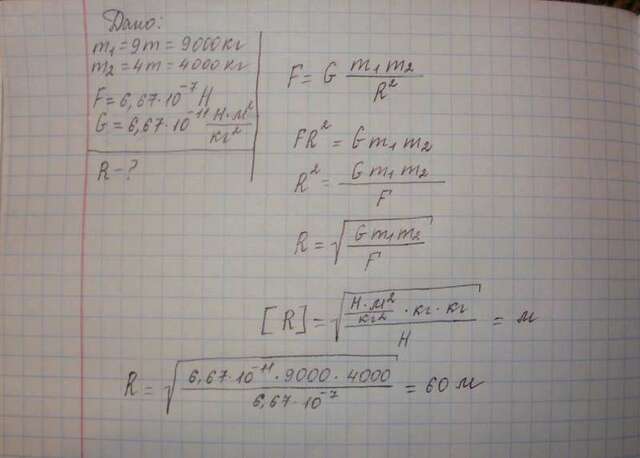 Дано:
m₁ = 9т = 9000кг
m₂ = 4т = 4000кг
F = 6,67·10⁻⁷ Н
G = 6,67·10⁻¹¹ Н·м²/кг²
R - ?
F = G m₁m₂/R²
FR² = Gm₁m₂
R² = Gm₁m₂/F
R = √(Gm₁m₂/F)
[R] = √((Н·м²/кг² · кг · кг)/Н) = м
R = √((6,67·10⁻¹¹ · 9000 · 4000)/(6,67·10⁻⁷)) = 60 м